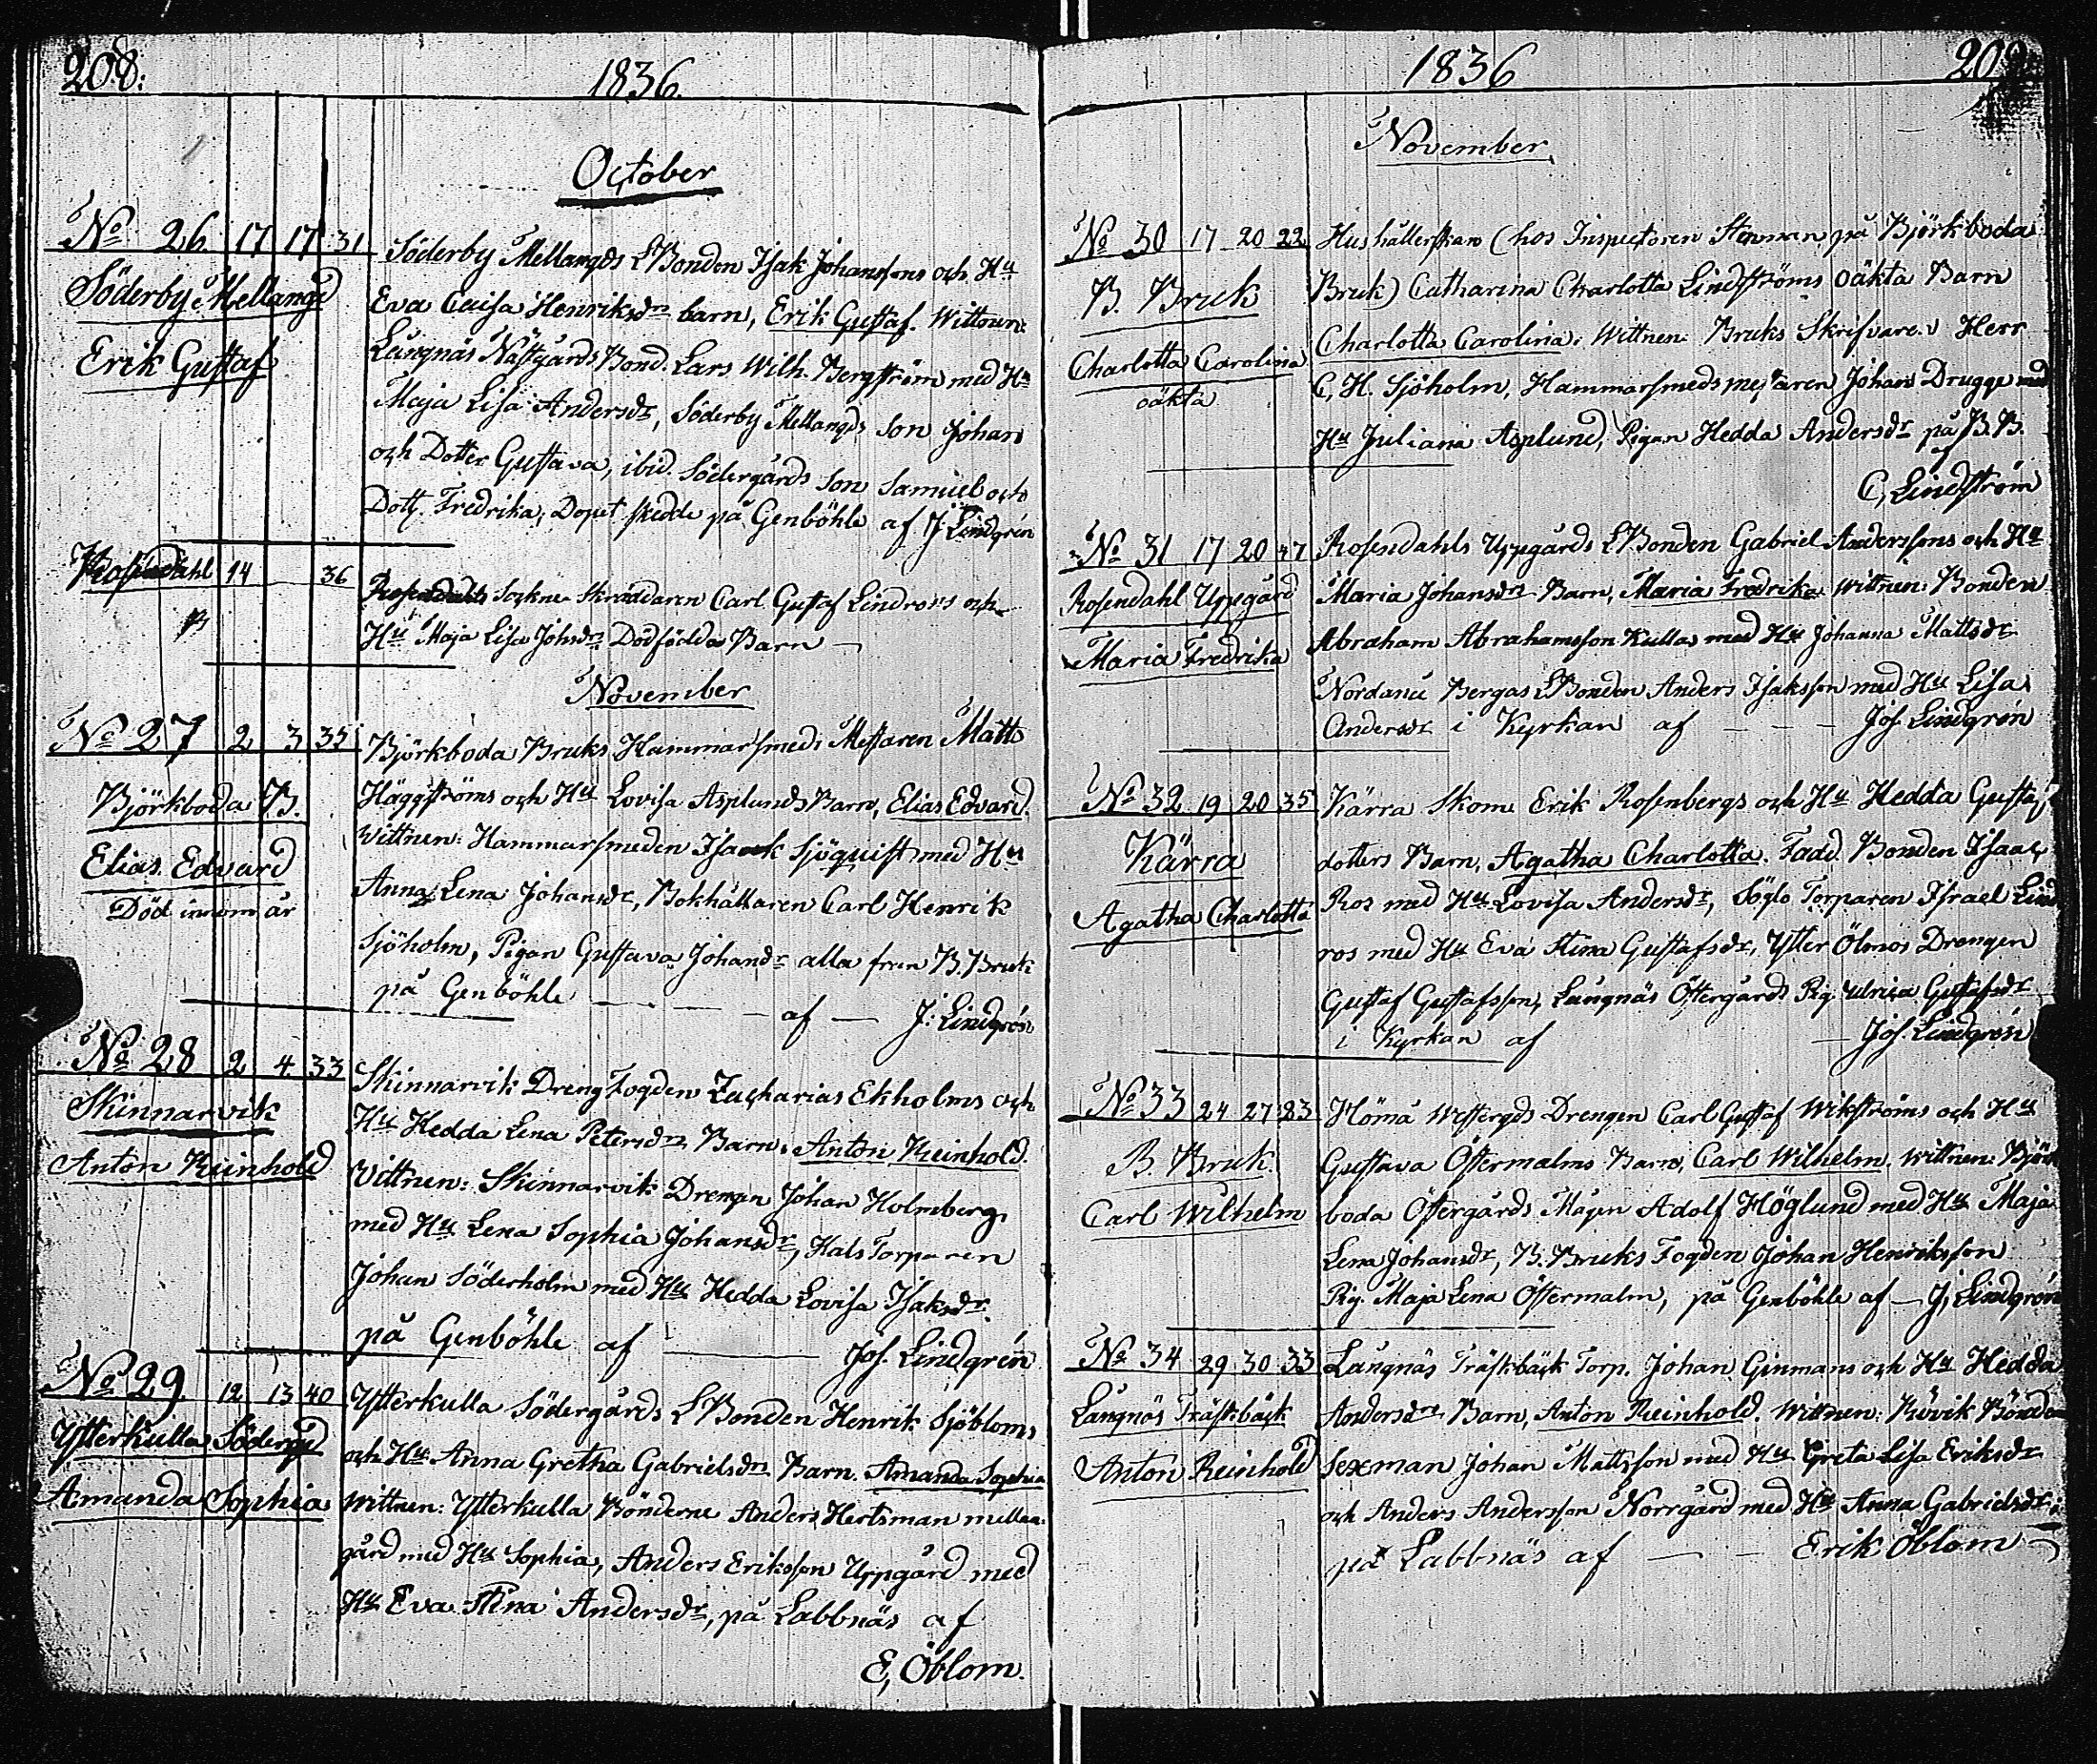 208.
1836.
October
No 26 17 17 31
Söderby Mellangd
Erik Gustaf
Söderby Mellangds LBonden Isak Johanssons och Hu
Eva Caisa Henriksdrs barn, Erik Gustaf. Wittnen:
Långnäs Nästgårds Bond. Lars Wilh. Bergström med Hu
Maja Lisa Andersdr, Söderby Mellangds Son Johan
och Dotter Gustava, ibid. Södergårds Son Samuel och
Dott. Fredrika, Dopet skedde på Genböhle af J: Lindgrén
Rosendahl 14 36
Rosendahls Sockne Skräddaren Carl Gustaf Lindroos och
Hu Maja Lisa Johsdrs Dödfödda Barn —
November
No 27 2 3 35
Björkboda B.
Elias Edvard
Död innom år
Björkboda Bruks Hammarsmeds Mestaren Matts
Häggströms och Hu Lovisa Asplunds Barn, Elias Edvard.
Wittnen: Hammarsmeden Isaak Sjöquist med Hu
Anna Lena Johansdr, Bokhållaren Carl Henrik
Sjöholm, Pigan Gustava Johansdr alla från B. Bruk
på Genböhle — — — af — J: Lindgrén
No 28 2 4 33
Skinnarvik
Anton Reinhold
Skinnarvik Dreng Fogden Zacharias Ekholms och
Hu Hedda Lena Petersdrs Barn, Anton Reinhold.
Vittnen: Skinnarvik Drengen Johan Holmberg
med Hu Lena Sophia Johansdr, Kals Torparen
Johan Söderholm med Hu Hedda Lovisa Isaksdr
på Genböhle af — Jos. Lindgrén
No 29 12 13 40
Ytterkulla Södergd
Amanda Sophia
Ytterkulla Södergårds LBonden Henrik Sjöbloms
och Hu Anna Gretha Gabrielsdrs Barn. Amanda Sophia
Wittnen: Ytterkulla Bönderne Anders Hertsman mellan-
gård med Hu Sophia, Anders Eriksson Uppgård med
Hu Eva Stina Andersdr, på Labbnäs af
E, Öblom.
1836
209
November
No 30 17 20 22
B. Bruk
Charlotta Carolina
oäkta
Hushållerskan (hos Inspectoren Stenman på Björkboda
Bruk) Catharina Charlotta Lindströms oäkta Barn
Charlotta Carolina. Wittnen: Bruks Skrifvaren Herr
C, H. Sjöholm, Hammarsmedsmestaren Johan Drugge med
Hu Juliana Asplund, Pigan Hedda Andersdr på B. B.
af
C, Lindström
No 31 17 20 47
Rosendahl Uppgård
Maria Fredrika
Rosendahls Uppgårds LBonden Gabriel Anderssons och Hu
Maria Johansdrs Barn, Maria Fredrika. Wittnen: Bonden
Abraham Abrahamsson Kulla med Hu Johanna Mattsdr
Nordanå Bergas LBonden Anders Isaksson med Hu Lisa
Andersdr i Kyrkan af — — Jos. Lindgrén
No 32 19 20 35
Kärra
Agatha Charlotta
Kärra Skom. Erik Rosenbergs och Hu Hedda Gustaf
dotters Barn, Agatha Charlotta. Fadd. Bonden Isaac
Ros med Hu Lovisa Andersdr, Söglo Torparen Israel Lind
ros med Hu Eva Stina Gustafsdr, Ytter Ölmos Drengen
Gustaf Gustafsson, Långnäs Östergårds Pig. Ulrica Gustafsdr
i Kyrkan af — Jos. Lindgrén
No 33 24 27 83
B. Bruk
Carl Wilhelm
Hömå Westergds Drengen Carl Gustaf Wikströms och Hu
Gustava Östermalms Barn, Carl Wilhelm. Wittnen: Björk
boda Östergårds Mågen Adolf Höglund med Hu Maja
Lena Johansdr, B. Bruks Fogden Johan Henriksson
Pig. Maja Lena Östermalm, på Genböhle af — J, Lindgrén
No 34 29 30 33
Långnäs Träskbäck
Anton Reinhold
Långnäs Träskbäck Torp. Johan Ginmans och Hu Hedda
Andersdrs Barn, Anton Reinhold. Wittnen: Rövik Bönde
Sexman Johan Mattsson med Hu Greta Lisa Eriksdr
och Anders Andersson Norrgård med Hu Anna Gabrielsdr
på Labbnäs af — — Erik Öblom —